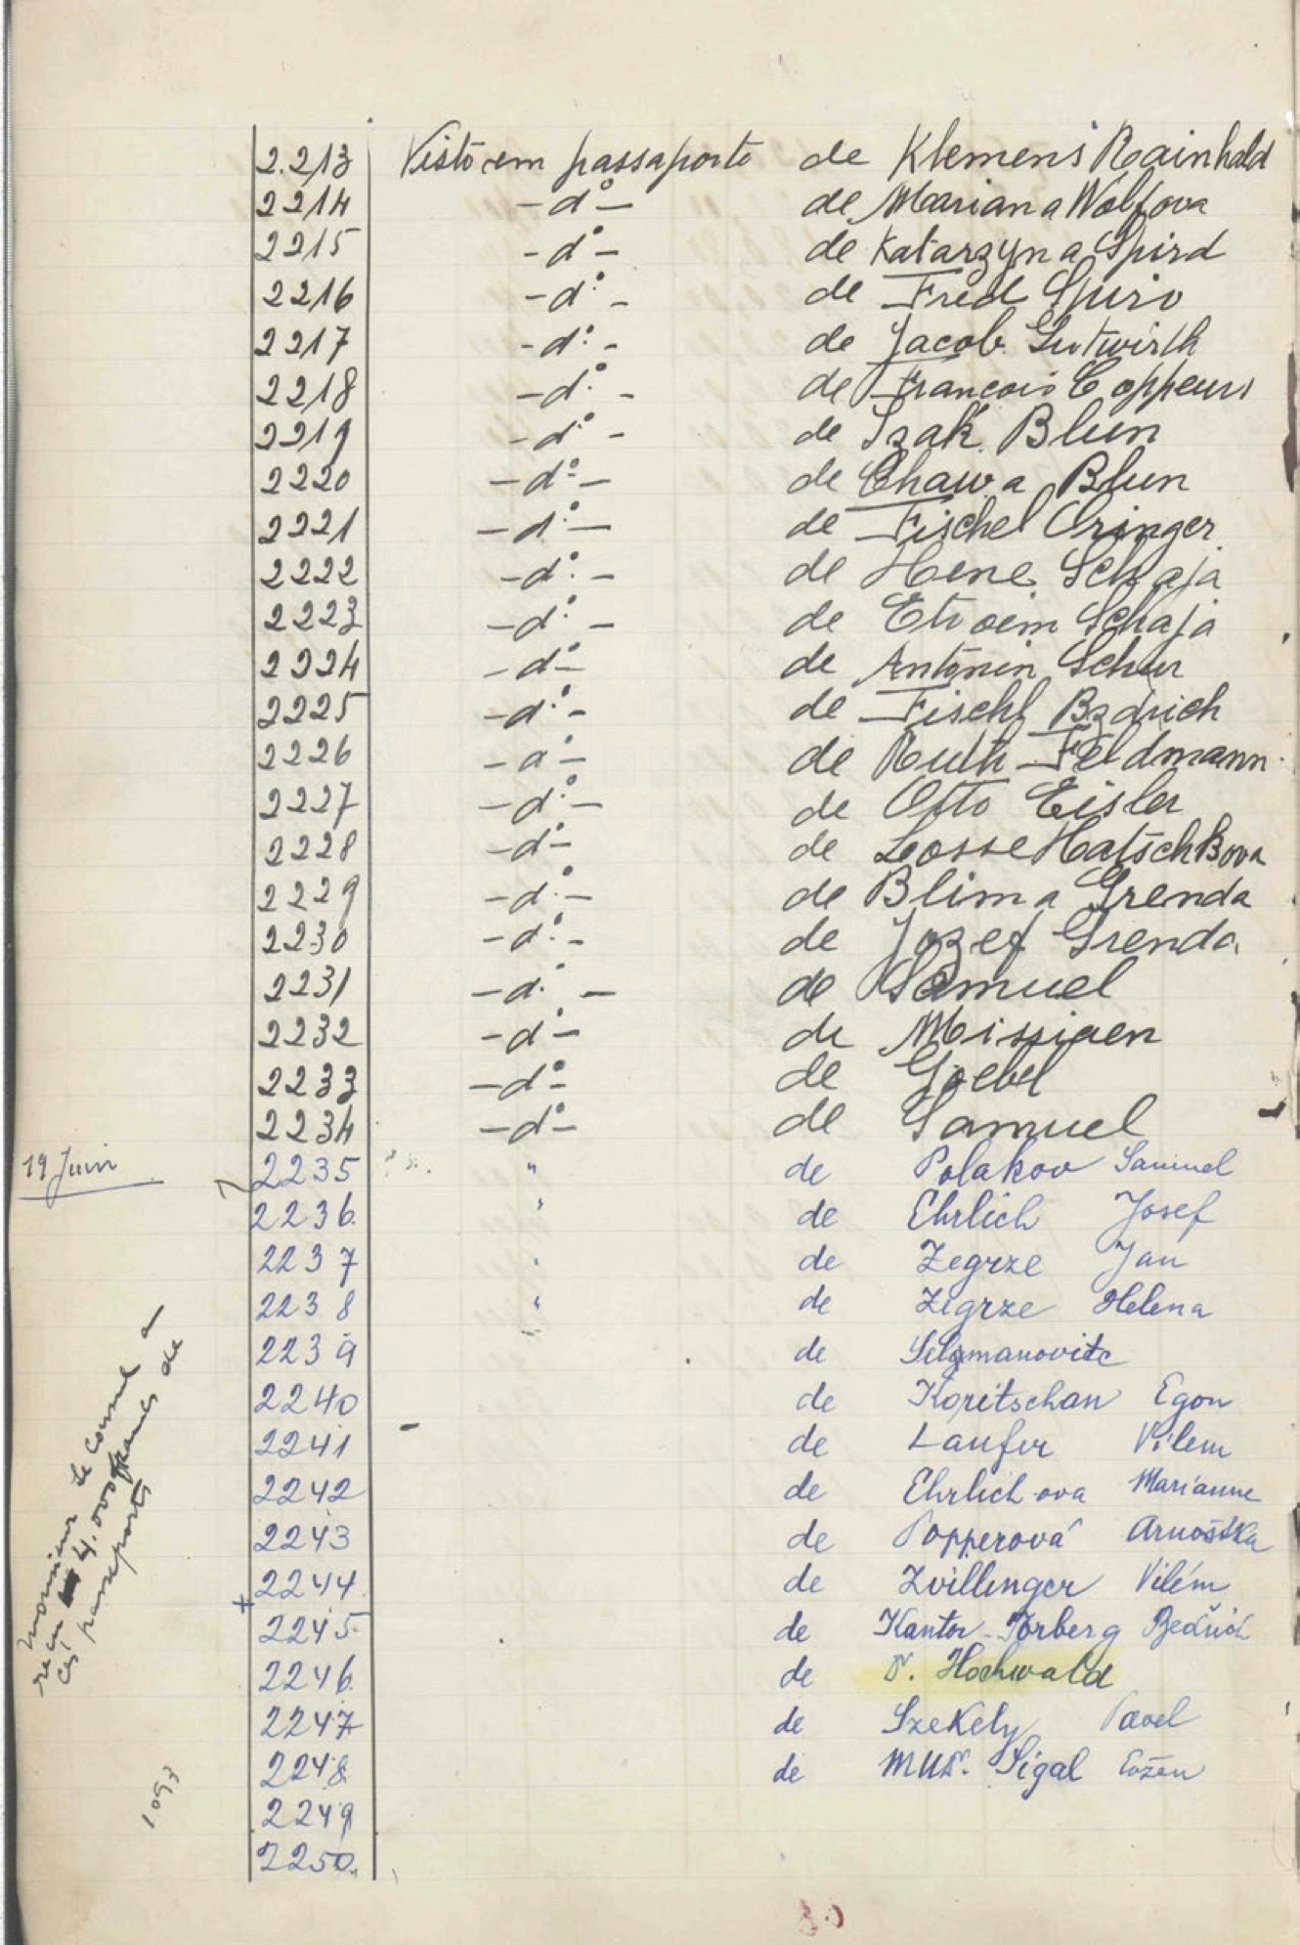 2.213 Visto em passaporto de Klemens Rainhold
2214 - dº - de Mariana Wolfova
2215 - dº - de Katarzyna Spird
2216 - dº - de Fred Spiro
2217 - dº - de Jacob Gutwirth
2218 - dº - de Francois Coppeurs
2219 - dº - de Izak Blun
2220 - dº - de Chawa Blun
2221 - dº - de Fischel Oringer
2222 - dº - de Hene Schaja
2223 - dº - de Schaja
2224 - dº - de Antonin Schur
2225 - dº - de Fischl Bzdrich
2226 - dº - de Ruth Feldmann
2227 - dº - de Otto Eisler
2228 - dº - de Hatschkova
2229 - dº - de Blima Grenda
2230 - dº - de Jozef Grenda
2231 - dº - de Samuel
2232 - dº - de Missiaen
2233 - dº - de Goebel
2234 - dº - de Samuel
19 Juin 2235 " de Polakov Samuel
2236 " de Ehrlich Josef
2237 " de Zegrze Jan
2238 " de Zegrze Helena
2239 " de Selzmanovitc
2240 de Koritschan Egon
2241 de Laufer Vilem
2242 de Ehrlichova Marianne
2243 de Popperová Arnoštka
2244 de Zvillinger Vilém
2245 de Kantor-Torberg Bedřich
2246 de Dr. Hochwald
2247 de Szekely Pavel
2248 de MUDr. Sigal Evžen
2249
2250
Monsieur le Consul a
reçu 4.000 francs de
ces passeports
1093